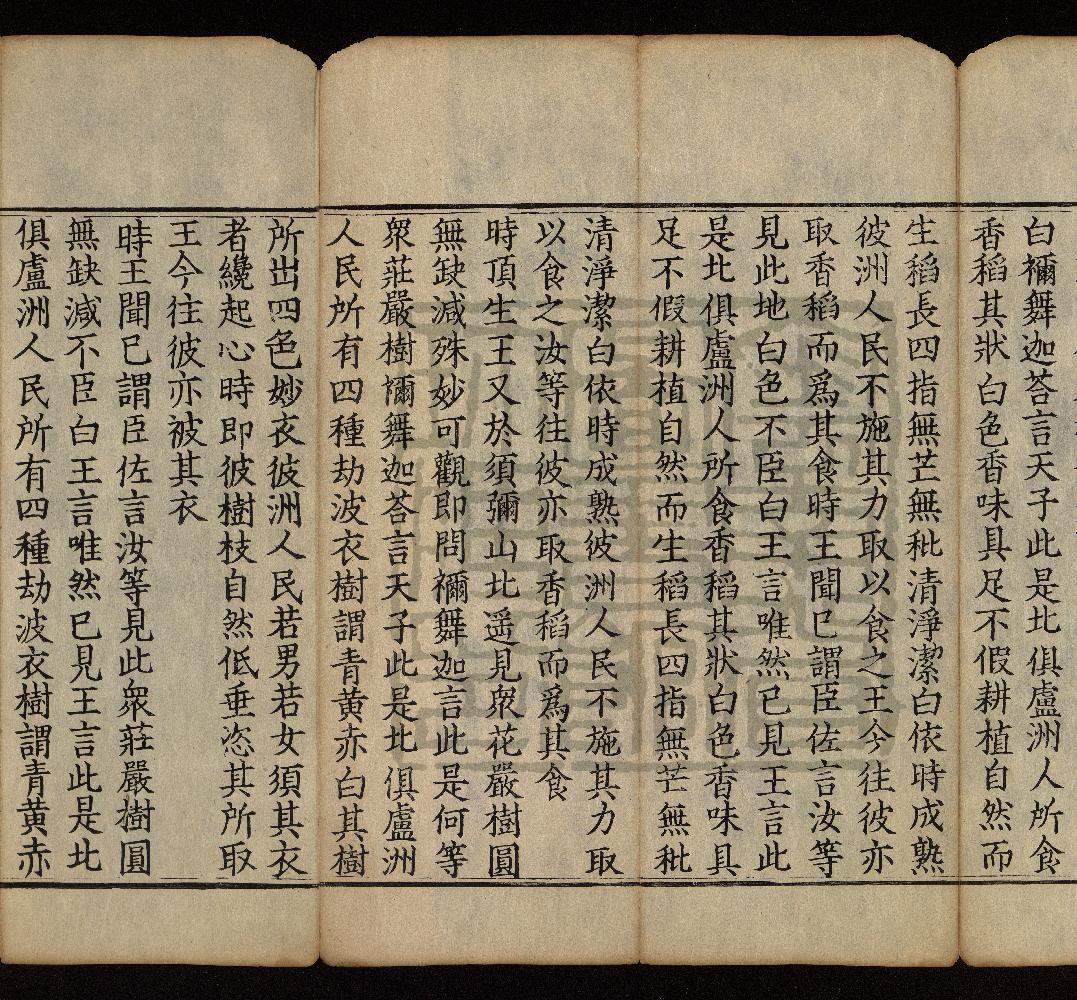 白禰舞迦荅言天子此是北俱盧洲人所食
香稻其狀白色香味具足不假耕植自然而
生稻長四指無芒無秕清淨潔白依時成熟
彼洲人民不施其力取以食之王今往彼亦
取香稻而爲其食時王聞已謂臣佐言汝等
見此地白色不臣白王言唯然已見王言此
是北俱盧洲人所食香稻其狀白色香味具
足不假耕植自然而生稻長四指無芒無秕
清淨潔白依時成熟彼洲人民不施其力取
以食之汝等往彼亦取香稻而爲其食
時頂生王又於須彌山北遥見衆花嚴樹圓
無缺減殊妙可觀即問禰舞迦言此是何等
衆莊嚴樹禰舞迦荅言天子此是北俱盧洲
人民所有四種劫波衣樹謂青黄赤白其樹
所出四色妙衣彼洲人民若男若女須其衣
者纔起心時即彼樹枝自然低垂恣其所取
王今往彼亦被其衣
時王聞已謂臣佐言汝等見此衆莊嚴樹圓
無缺減不臣白王言唯然已見王言此是北
俱盧洲人民所有四種劫波衣樹謂青黄赤